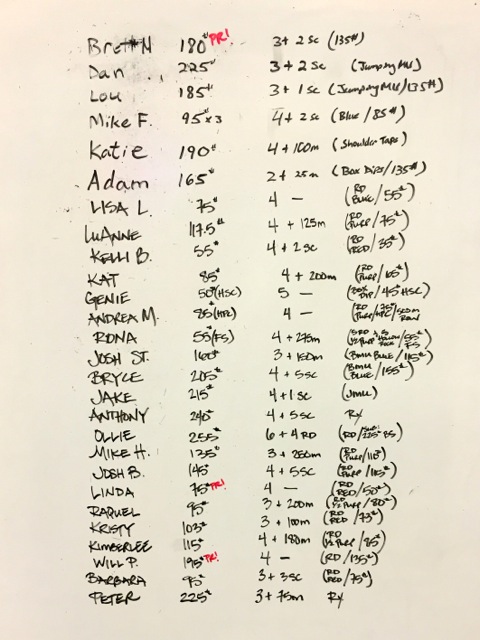 Brett N 180# PR! 3 + 2 SC (135#)
Dan 225# 3 + 2 SC (Jumping MU)
Lou 185# 3 + 1 SC (Jumping MU/135#)
Mike F. 95 x 3 4 + 2 SC (Blue/85#)
Katie 190# 4 + 100m (Shoulder Taps)
Adam 165# 2 + 25m (Box Dips/135#)
LISA L. 75# 4 — (RD BLUE/55#)
LUANNE 117.5# 4 + 125m (RD PURP/75#)
KELLI B. 55# 4 + 2 SC (RD RED/35#)
KAT 85# 4 + 200m (RD PURP/65#)
GENIE 50#(HSC) 5 — (BOX DIP/45# HSC)
ANDREA M. 85#(HPC) 4 — (RD PURP/75# HPC/500m ROW)
RONA 55#(FS) 4 + 275m
JOSH ST. 160# 3 + 150m (BMU BLUE/115#)
BRYCE 205# 4 + 5SC (BMU BLUE/155#)
JAKE 215# 4 + 1 SC (JMU)
ANTHONY 240# 4 + 5 SC RX
OLLIE 255# 6 + 4 RD (RD/225# BS)
MIKE H. 135# 3 + 250m (RD PURP/115#)
JOSH B. 145# 4 + 5SC (RD PURP/115#)
LINDA 75# PR! 4 — (RD RED/50#)
RAQUEL 95# 3 + 200m (RD 1/2 PURP/80#)
KRISTY 103# 3 + 100m (RD RED/73#)
KIMBERLEE 115# 4 + 180m (RD 1/2 PURP/85#)
WILL P. 195# PR! 4 — (RD/135#)
BARBARA 95# 3 + 3SC (RD RED/75#)
PETER 225# 3 + 75m RX